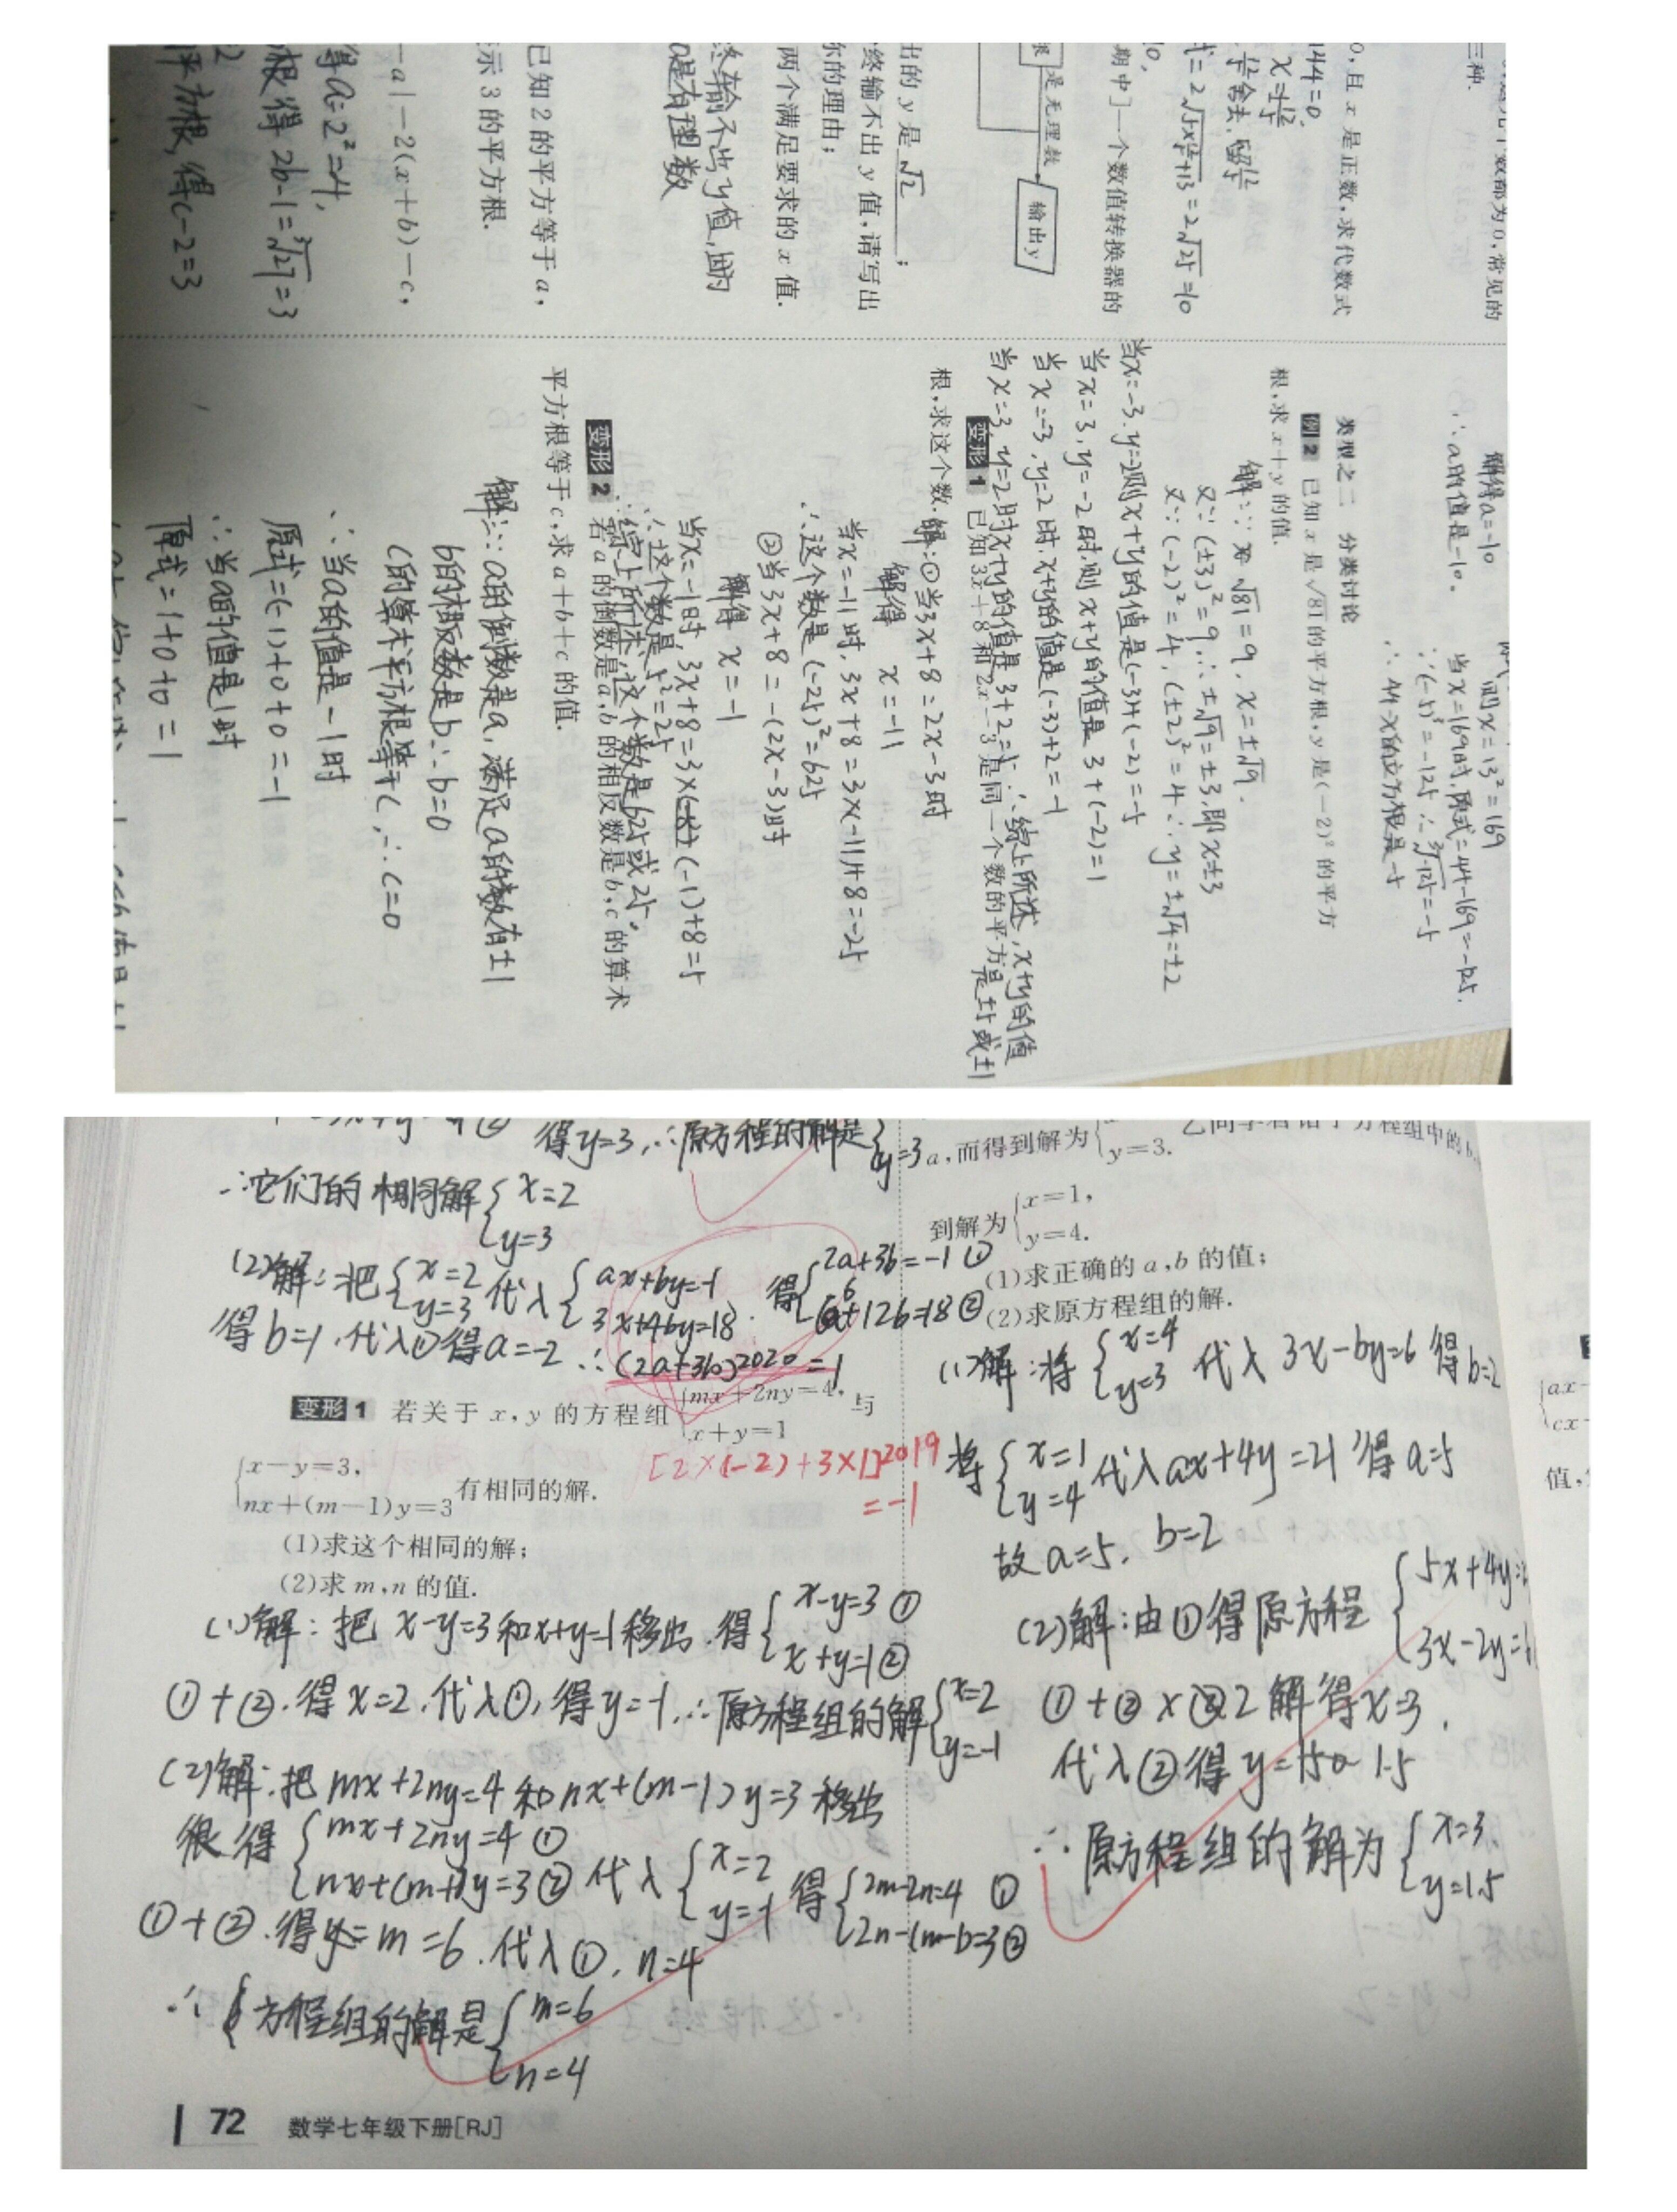 三种.
0,且 x 是正数,求代数式
144=0.
期中]一个数值转换器的
是无理数
输出y
出的 y 是 √2 ;
终输不出 y 值,请写出
你的理由;
两个满足要求的 x 值.
终输不出y值,因为
a是有理数
已知 2 的平方等于 a,
示 3 的平方根.
-a|-2(x+b)-c,
得a=2²=4,
根得 2b-1=∛27=3
平方根,得c-2=3
解得a=-10
∴a的值是-10.
则x=13²=169
当x=169时,原式=44-169=-125.
∵(-5)³=-125 ∴∛-125=-5
∴44-x的立方根是-5
类型之二 分类讨论
例2 已知 x 是 √81 的平方根,y 是(-2)² 的平方
根,求 x+y 的值.
解:∵√81=9, x=±√9.
又∵(±3)²=9,∴±√9=±3,即x=±3
又∵(-2)²=4,(±2)²=4∴y=±√4=±2
当x=-3,y=-2则x+y的值是(-3)+(-2)=-5
当x=3,y=-2时,则x+y的值是3+(-2)=1
当x=-3,y=2时,x+y的值是(-3)+2=-1
当x=3,y=2时x+y的值是3+2=5∴综上所述,x+y的值
是±5或±1
变形1 已知 3x+8 和 2x-3 是同一个数的平方
根,求这个数.
解:①当3x+8=2x-3时
解得 x=-11
当x=-11时,3x+8=3×(-11)+8=-25
∴这个数是(-25)²=625
②当3x+8=-(2x-3)时
解得 x=-1
当x=-1时,3x+8=3×(-1)+8=5
∴这个数是5²=25
∴综上所述,这个数是625或25.
变形2 若 a 的倒数是 a,b 的相反数是 b,c 的算术
平方根等于 c,求 a+b+c 的值.
解:∵a的倒数是a,满足a的数有±1
b的相反数是b∴b=0
c的算术平方根等于c,∴c=0
∴当a的值是-1时
原式=(-1)+0+0=-1
∴当a的值是1时
原式=1+0+0=1
得y=3,∴原方程的解是
y=3
∴它们的相同解{x=2
y=3
(2)解:把{x=2 y=3 代入{ax+by=-1 3x+4by=18. 得{2a+3b=-1① 6+12b=18②
得b=1.代入①得a=-2∴(2a+3b)²⁰²⁰=1
变形1 若关于 x,y 的方程组{mx+2ny=4, x+y=1 与
{x-y=3, nx+(m-1)y=3 有相同的解.
[2×(-2)+3×1]²⁰¹⁹
=-1
(1)求这个相同的解;
(2)求 m,n 的值.
(1)解:把 x-y=3和x+y=1移出.得{x-y=3① x+y=1②
①+②.得x=2.代入①,得y=-1.∴原方程组的解{x=2 y=-1
(2)解:把 mx+2ny=4 和nx+(m-1)y=3移出
得{mx+2ny=4① nx+(m-1)y=3② 代入{x=2 y=-1 得{2m-2n=4① 2n-(m-1)=3②
①+②.得m=6.代入①,n=4
∴方程组的解是{m=6
n=4
72 数学七年级下册[RJ]
a,而得到解为{
y=3.
到解为{x=1,
y=4.
(1)求正确的 a,b 的值;
(2)求原方程组的解.
(1)解:将{x=4 y=3 代入 3x-by=6 得b=2
将{x=1 y=4 代入ax+4y=21得a=5
故a=5,b=2
(2)解:由①得原方程{5x+4y=
3x-2y=
①+②×2解得x=3.
代入②得y=1.5
∴原方程组的解为{x=3.
y=1.5
值,